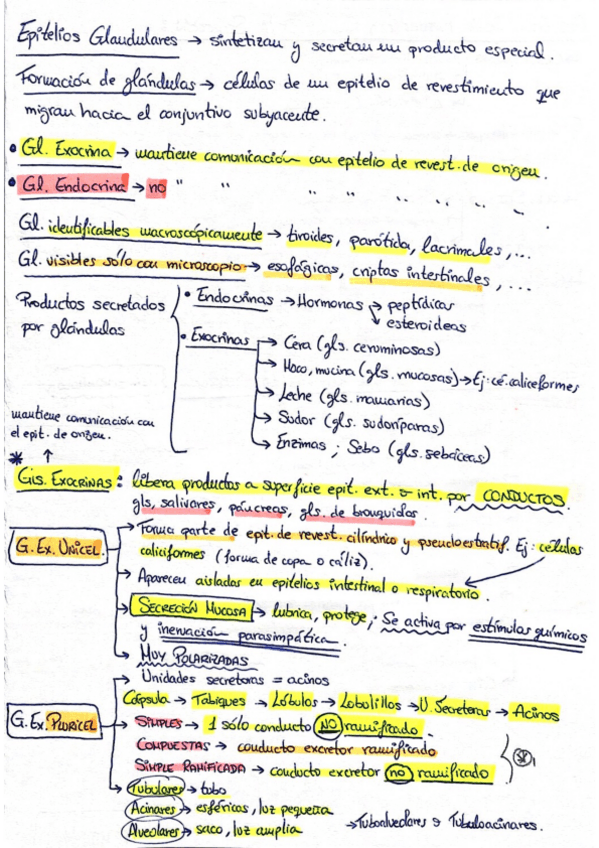 Epitelios Glandulares → sintetizan y secretan un producto especial.
Formación de glándulas → células de un epitelio de revestimiento que
migran hacia el conjuntivo subyacente.
• Gl. Exocrina → mantiene comunicación con epitelio de revest. de origen.
• Gl. Endocrina → no " " " " " " "
Gl. identificables macroscópicamente → tiroides, parótida, lacrimales, ...
Gl. visibles sólo con microscopio → esofágicas, criptas intestinales, ...
Productos secretados
por glándulas
• Endocrinas → Hormonas → peptídicas
→ esteroideas
• Exocrinas → Cera (gls. ceruminosas)
→ Moco, mucina (gls. mucosas) → Ej: cé. caliceformes
→ Leche (gls. mamarias)
→ Sudor (gls. sudoríparas)
→ Enzimas ; Sebo (gls. sebáceas)
mantiene comunicación con
el epit. de origen.
* ↑
Gls. EXOCRINAS : libera productos a superficie epit. ext. o int. por CONDUCTOS.
gls, salivares, páncreas, gls. de bronquios.
G. EX. UNICEL. → Forma parte de epit. de revest. cilíndrico y pseudoestratif. Ej: células
caliciformes (forma de copa o cáliz).
→ Aparecen aisladas en epitelios intestinal o respiratorio.
→ SECRECIÓN MUCOSA → lubrica, protege ; Se activa por estímulos químicos
y inervación parasimpática.
→ MUY POLARIZADAS
G. EX. PLURICEL → Unidades secretoras = acinos
Cápsula → Tabiques → Lóbulos → Lobolillos → U. Secretoras → Acinos
→ SIMPLES → 1 sólo conducto NO ramificado.
COMPUESTAS → conducto excretor ramificado
SIMPLE RAMIFICADA → conducto excretor no ramificado
→ Tubulares → tubo
Acinares → esféricas, luz pequeña
Alveolares → saco, luz amplia → Tuboalveolares o Tubuloacinares.